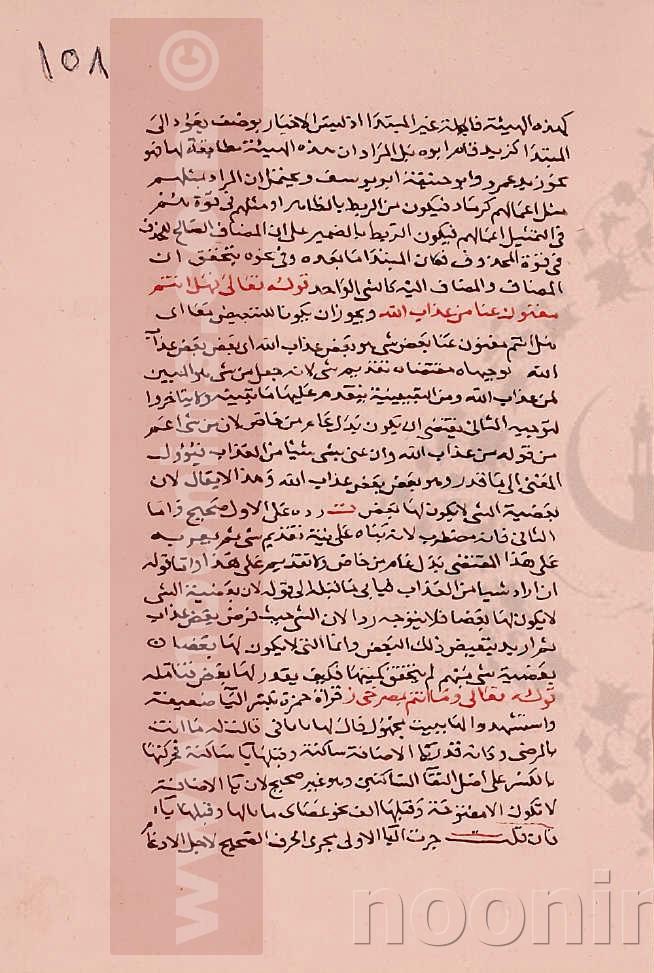 ١٥٨
كهذه الهيئة فالجملة غير المبتدا اذ ليس الاخبار بوصف يعود الى
المبتدا كزيد قام ابوه بل المراد ان هذه الهيئة مطابقة لها فهو
نحو زيد عمرو وابو حنيفة ابو يوسف ويحتمل ان المراد مثلهم
مثل اعمالهم كرماد فيكون من الربط بالظاهر او مثلهم في قوة مثلهم
في التمثيل اعمالهم فيكون الربط بالضمير على ان المضاف الصالح للحذف
في قوة المحذوف فكان المبتدا ما بعده وفي نحوه يتحقق ان
المضاف والمضاف اليه كالشي الواحد قوله تعالى فهل انتم
مغنون عنا من عذاب الله ويجوز ان يكونا للتبعيض معا اي
هل انتم مغنون عنا بعض شي هو بعض عذاب الله اي بعض بعض عذاب
الله توجيهاه مقتضاه تقديم شي لانه جعل من شي هو المبين
لمن عذاب الله ومن التبيينية يتقدم عليها ما تبينه ولا يتاخر وا
لتوجيه الثاني يقتضي ان يكون بدل عام من خاص لان من شي اعم
من قوله من عذاب الله وان عنى بشي شيئا من العذاب فيؤول
المعنى الى ما قدر وهو بعض بعض عذاب الله وهذا لا يقال لان
بعضية الشي لا يكون لها بعض ت رده على الاول صحيح واما
الثاني فانه مضطرب لانه بناه على نية تقديم شي
على هذا المقتضي بدل عام من خاص ولا تقديم على هذا واما قوله
ان اراد شيا من العذاب الى قوله لان بعضية الشي
لا يكون لها بعضا فلا يتوجه ردا لان الشي حيث فرض بعض عذاب
ثم اريد تبعيض ذلك البعض وانما التي لا يكون لها بعضا ان
بعضية شي منهم لم يتحقق كميتها فكيف يقدر لها بعض فتامله
قوله تعالى وما انتم بمصرخي ز قراة حمزة بكسر اليا ضعيفة
واستشهدوا لها ببيت مجهول قال لها هل لك يا تا في قالت له ما انت
بالمرضي وكانه قدر يا الاضافة ساكنة وقبلها يا ساكنة فحركها
بالكسر على اصل التقا الساكنين وهو غير صحيح لان يا الاضافة
لا تكون الا مفتوحة وقبلها الف نحو عصاي فما بالها وقبلها ياء
فان قلت جرت اليا الاولى مجرى الحرف الصحيح لاجل الادغام
©
noonin